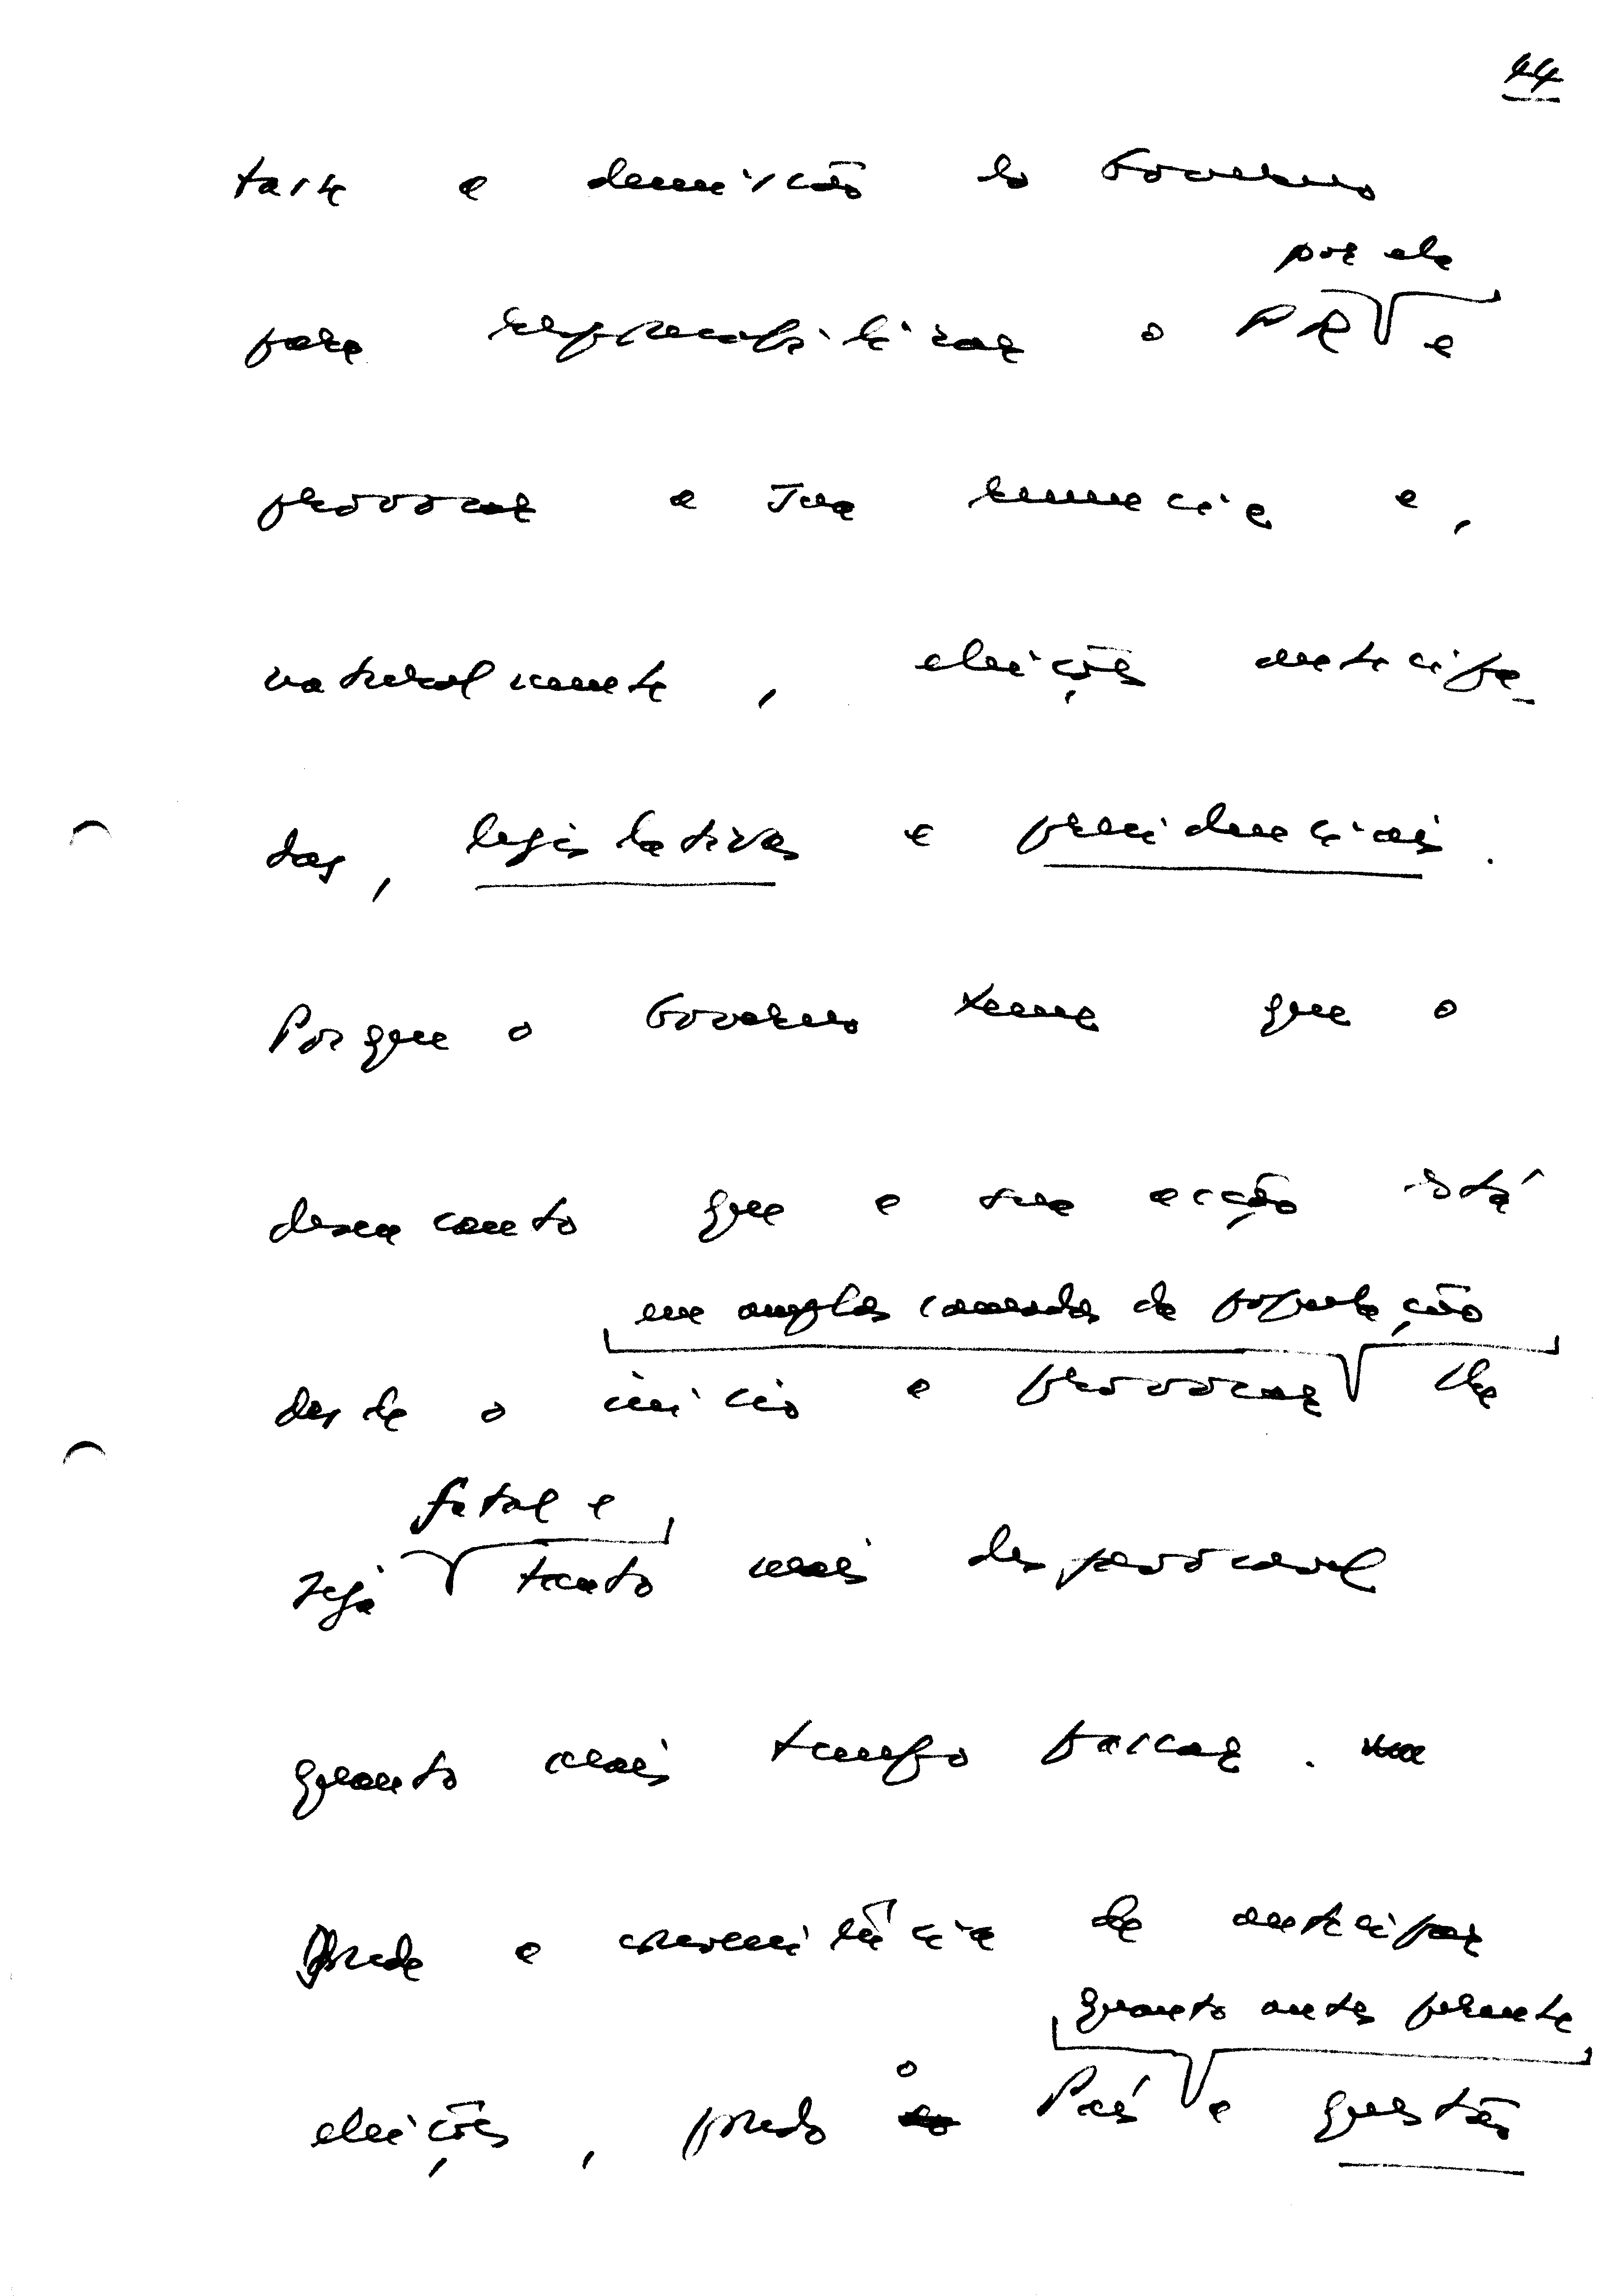 44
tasse a demissão do Governo
por ela
para responsabilizar o PR e
provocar a sua renúncia e,
naturalmente, eleições antecipa-
das, legislativas e presidenciais.
Porque o Governo teme que o
desencanto que a sua acção está
em amplas camadas da população
desde o início a provocar lhe
fatal e
seja tanto mais desfavoravel
quanto mais tempo passar.
Onde a conveniência de antecipar
quanto antes perante
o
eleições, pondo País a questão